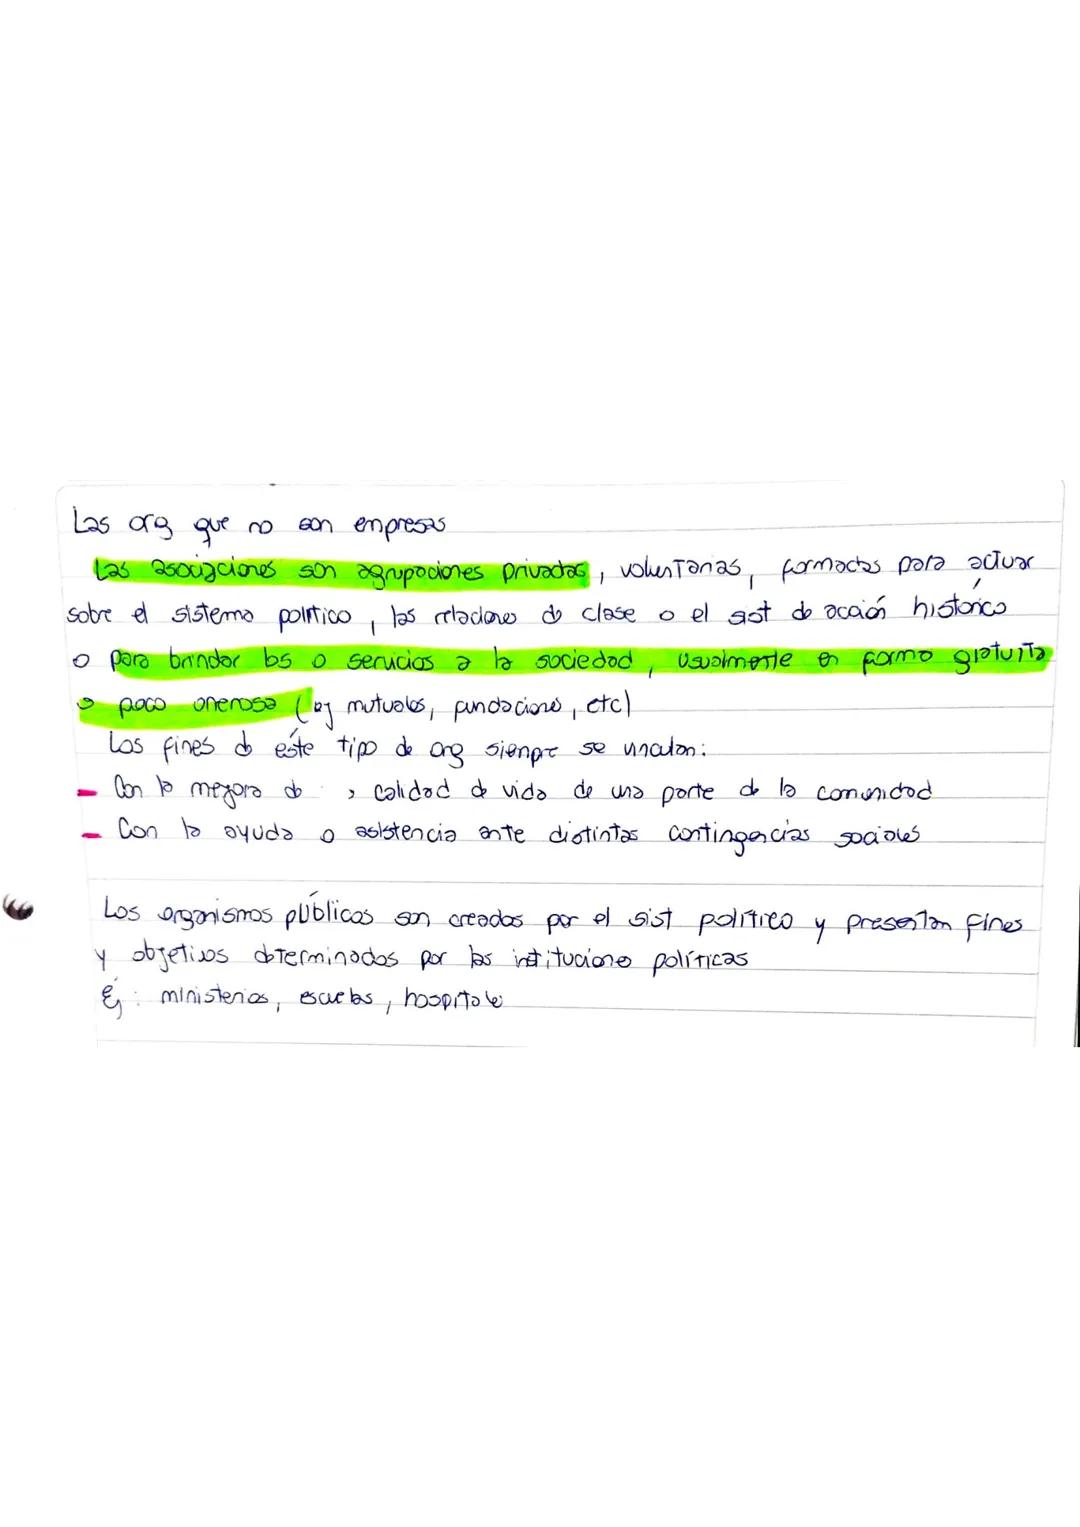 Las org que no son empresas
Las asociaciones son agrupaciones privadas, voluntarias, formadas para actuar
sobre el sistema político, las relaciones de clase o el sist de acción histórico
o para brindar bs o servicios a la sociedad, usualmente en forma gratuita
o poco onerosa (ej mutuales, fundaciones, etc)
Los fines de éste tipo de org siempre se vinculan:
- Con la mejora de calidad de vida de una parte de la comunidad
- Con la ayuda o asistencia ante distintas contingencias sociales
Los organismos públicos son creados por el sist político y presentan fines
y objetivos determinados por las instituciones políticas
Ej: ministerios, escuelas, hospitales